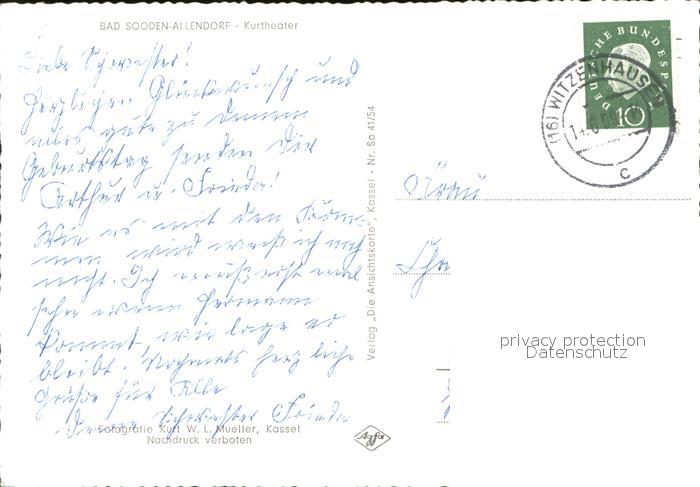 BAD SOODEN-ALLENDORF - Kurtheater
Liebe Schwester!
Herzlichen Glückwunsch und
alles gute zu Deinem
Geburtstag senden Dir
Arthur u. Frieda!
Wie es mit den
wird weiß ich noch
nicht. Ich muß erst mal
sehn wenn Hermann
kommt, wie lage er
bleibt. Nochmals herzliche
Grüße für Alle
Deine Schwester Frieda
Fotografie Kurt W. L. Mueller, Kassel
Nachdruck verboten
Verlag „Die Ansichtskarte", Kassel - Nr. So 41/54
Agfa
DEUTSCHE BUNDESPOST
10
(16) WITZENHAUSEN
c
Frau
privacy protection
Datenschutz